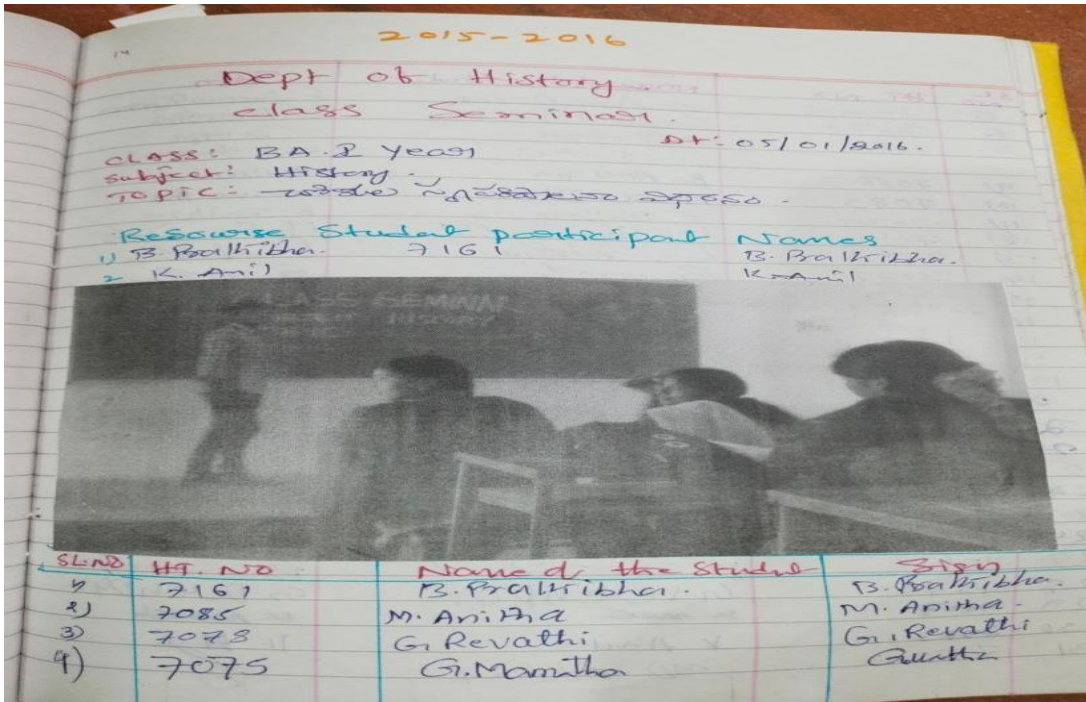 14
2015-2016
Dept of History
class Seminar.
Dt: 05/01/2016.
CLASS: BA.I Year
Subject: History.
TOPIC:
Resourse Student participant Names
1) B. Prathibha. 7161 B. Prathibha.
2 K. Anil K. Anil
CLASS SEMINAR
HISTORY
SL.NO HT. NO: Name of the Student Sign
1) 7161 B. Prathibha. B. Prathibha.
2) 7085 M. Anitha M. Anitha.
3) 7073 G. Revathi G. Revathi
4) 7075 G. Mamatha